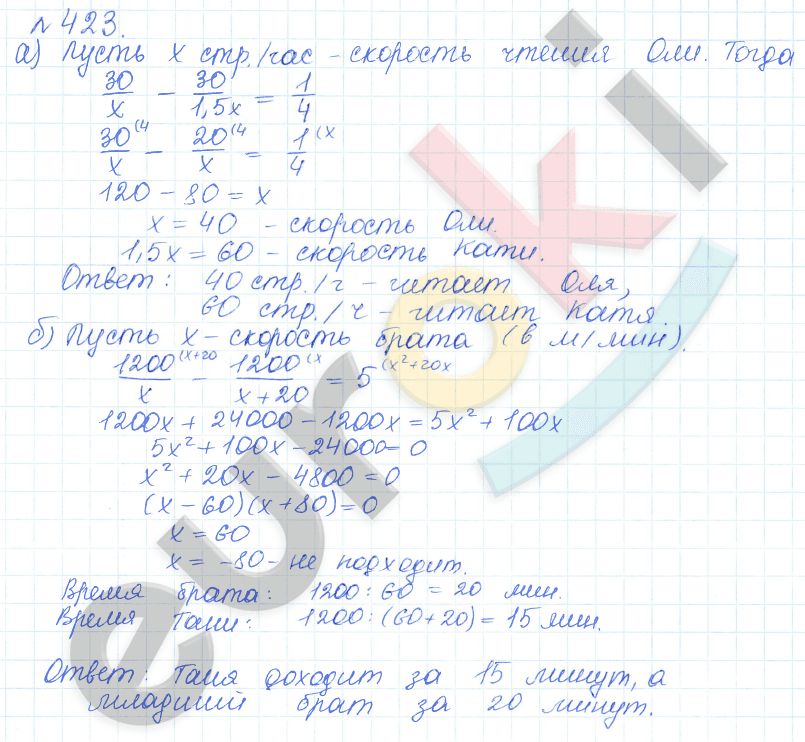 № 423.
а) Пусть x стр./час - скорость чтения Оли. Тогда
30/x - 30/1,5x = 1/4
30(4/x - 20(4/x = 1(x/4
120 - 80 = x
x = 40 - скорость Оли.
1,5x = 60 - скорость Кати.
Ответ: 40 стр./ч - читает Оля,
60 стр./ч - читает Катя.
б) Пусть x - скорость брата (в м/мин).
1200(x+20/x - 1200(x/x+20 = 5(x²+20x
1200x + 24000 - 1200x = 5x² + 100x
5x² + 100x - 24000 = 0
x² + 20x - 4800 = 0
(x - 60)(x + 80) = 0
x = 60
x = -80 - не подходит.
Время брата: 1200 : 60 = 20 мин.
Время Тани: 1200 : (60+20) = 15 мин.
Ответ: Таня доходит за 15 минут, а
младший брат за 20 минут.
euroki